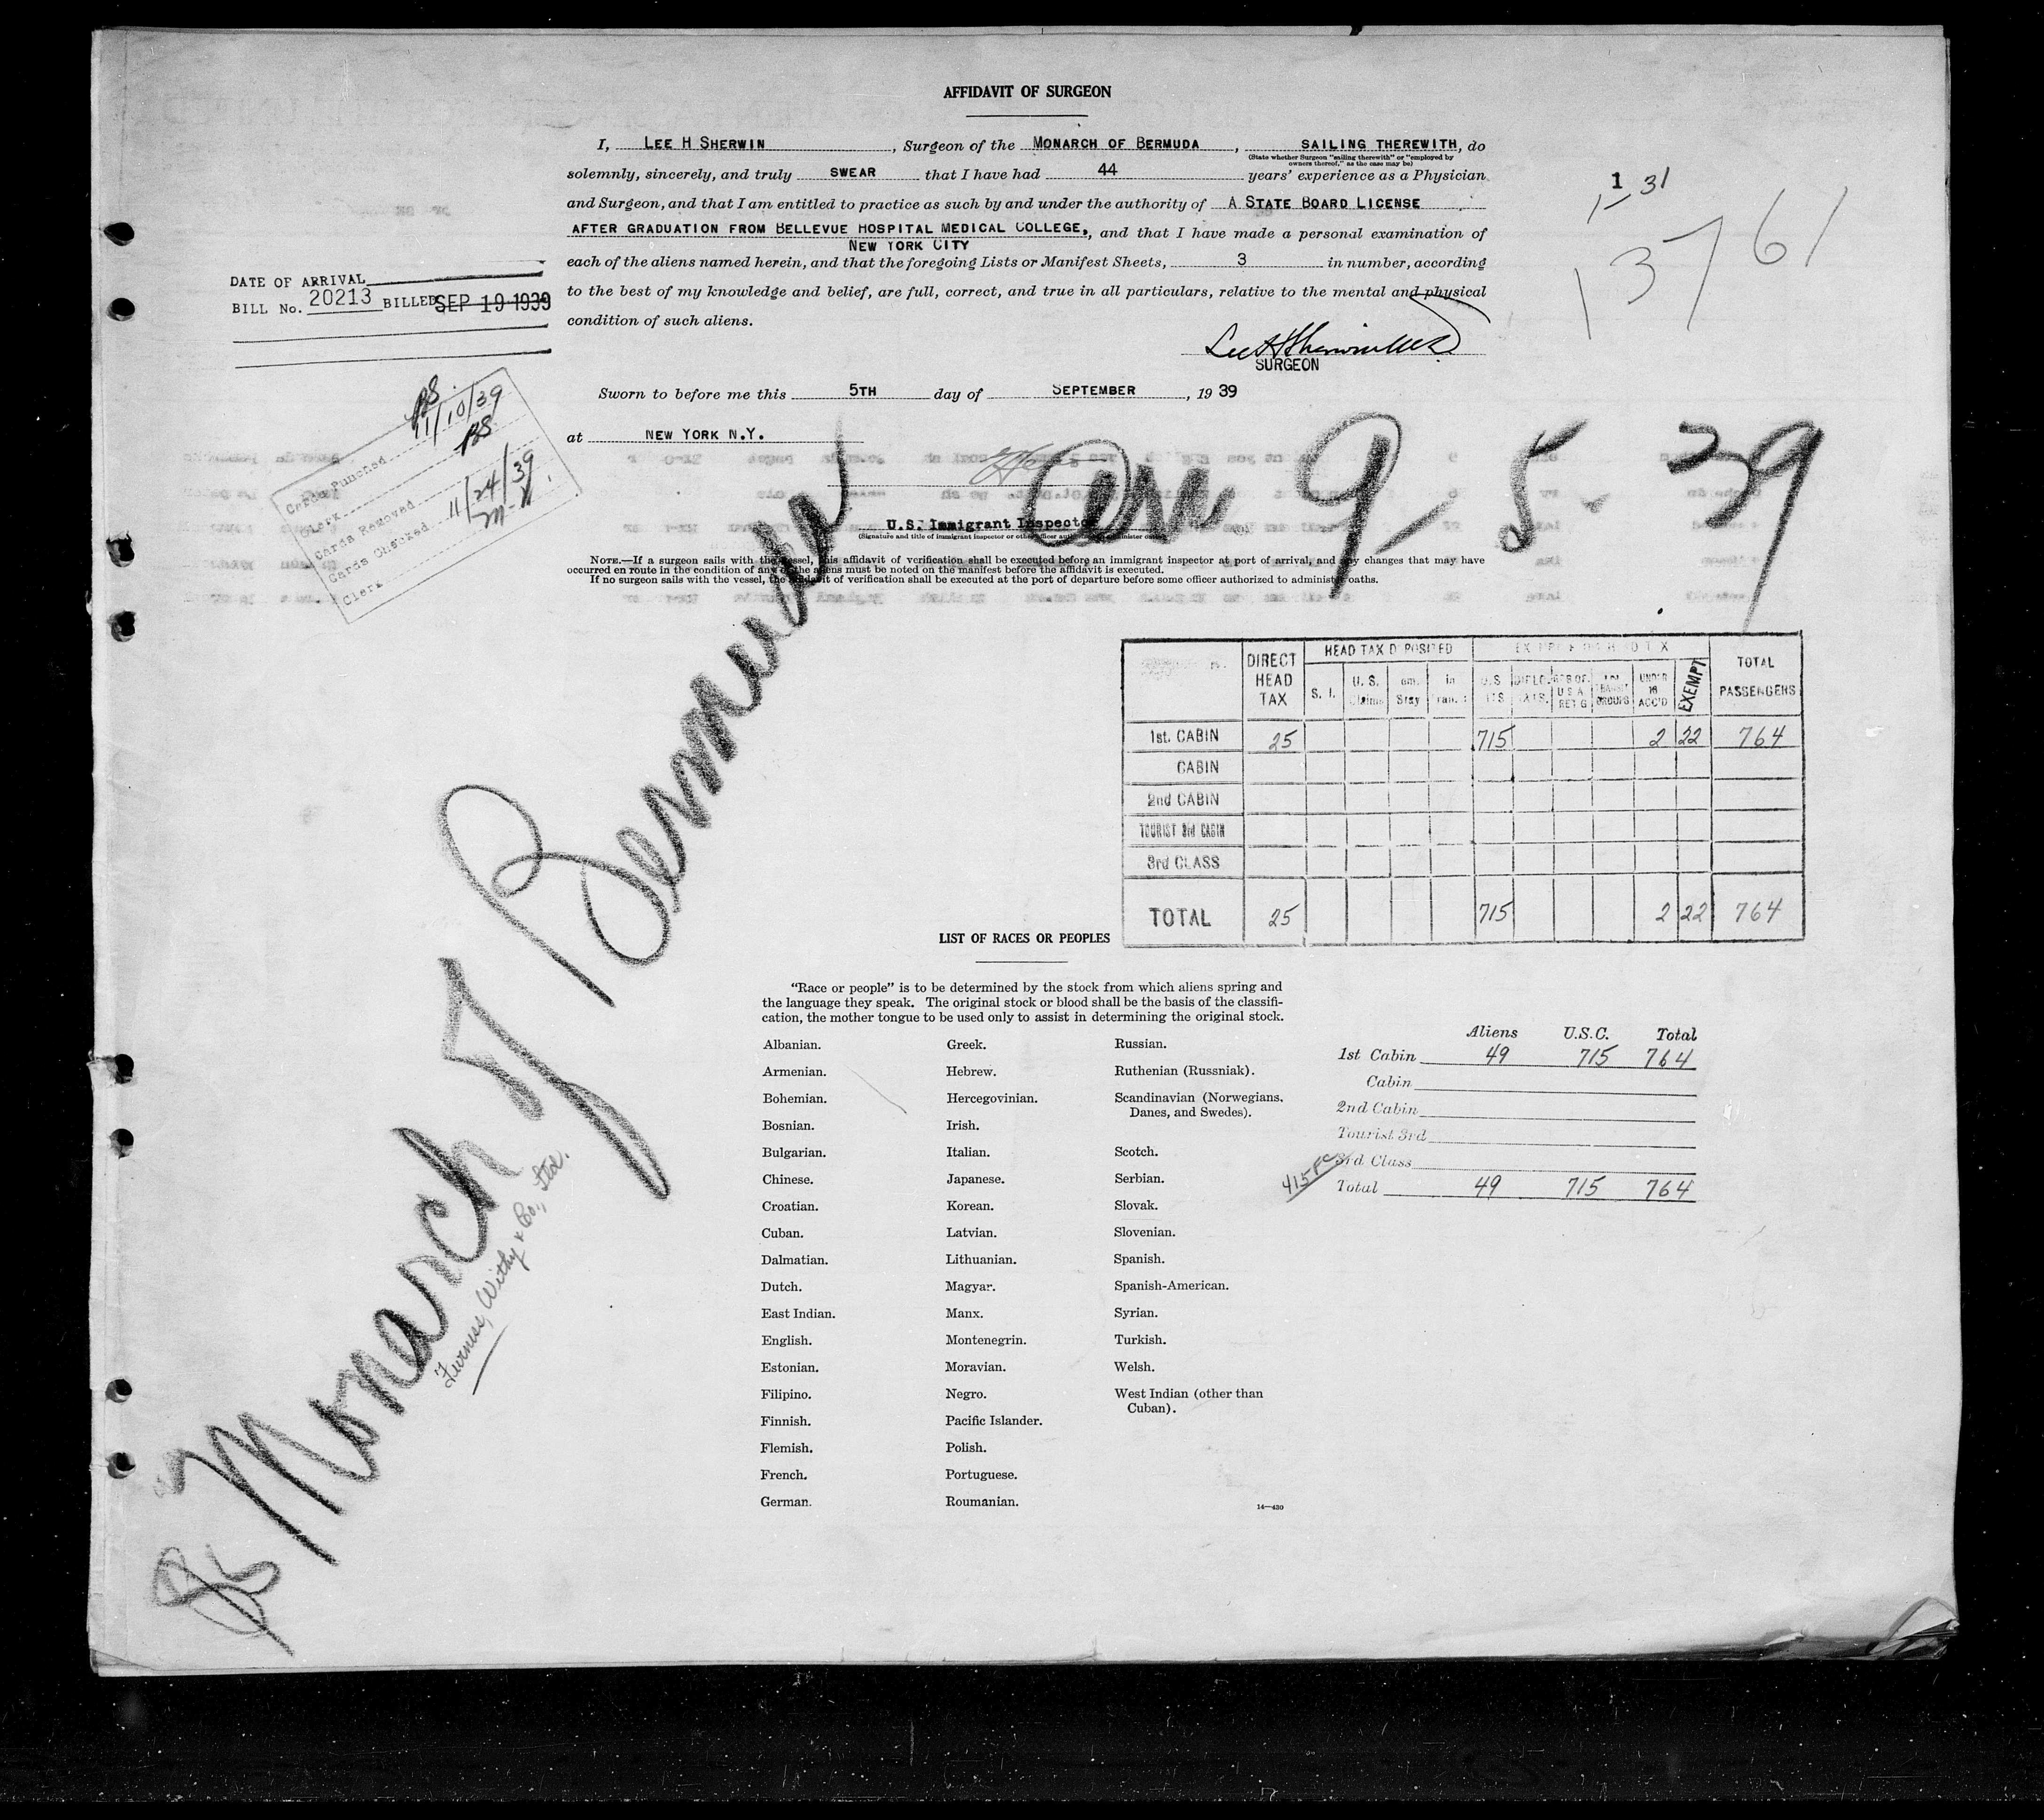 AFFIDAVIT OF SURGEON
I, LEE H SHERWIN, Surgeon of the MONARCH OF BERMUDA, SAILING THEREWITH, do
(State whether Surgeon "sailing therewith" or "employed by
owners thereof," as the case may be)
solemnly, sincerely, and truly SWEAR that I have had 44 years' experience as a Physician
and Surgeon, and that I am entitled to practice as such by and under the authority of A STATE BOARD LICENSE
AFTER GRADUATION FROM BELLEVUE HOSPITAL MEDICAL COLLEGE, and that I have made a personal examination of
NEW YORK CITY
each of the aliens named herein, and that the foregoing Lists or Manifest Sheets, 3 in number, according
to the best of my knowledge and belief, are full, correct, and true in all particulars, relative to the mental and physical
condition of such aliens.
SURGEON
1
1-31
13761
DATE OF ARRIVAL
BILL No. 20213 BILLED SEP 19 1939
Sworn to before me this 5TH day of SEPTEMBER, 1939
at NEW YORK N.Y.
Cards Punched 11/10/39
Clerk
Cards Removed
Cards Checked 11/24/39
Clerk
9-5-39
U.S. Immigrant Inspector
(Signature and title of immigrant inspector or other officer
NOTE.—If a surgeon sails with the vessel, this affidavit of verification shall be executed before an immigrant inspector at port of arrival, and any changes that may have
occurred en route in the condition of any of the aliens must be noted on the manifest before the affidavit is executed.
If no surgeon sails with the vessel, the affidavit of verification shall be executed at the port of departure before some officer authorized to administer oaths.
DIRECT HEAD TAX
HEAD TAX DEPOSITED
S. I. U. S. Claims Stay
UNDER 16 ACC'D EXEMPT
TOTAL PASSENGERS
1st. CABIN 25 715 2 22 764
CABIN
2nd CABIN
TOURIST 3rd CABIN
3rd CLASS
TOTAL 25 715 2 22 764
SS Monarch of Bermuda
Furness, Withy & Co., Ltd.
LIST OF RACES OR PEOPLES
"Race or people" is to be determined by the stock from which aliens spring and
the language they speak. The original stock or blood shall be the basis of the classifi-
cation, the mother tongue to be used only to assist in determining the original stock.
Albanian.
Armenian.
Bohemian.
Bosnian.
Bulgarian.
Chinese.
Croatian.
Cuban.
Dalmatian.
Dutch.
East Indian.
English.
Estonian.
Filipino.
Finnish.
Flemish.
French.
German.
Greek.
Hebrew.
Hercegovinian.
Irish.
Italian.
Japanese.
Korean.
Latvian.
Lithuanian.
Magyar.
Manx.
Montenegrin.
Moravian.
Negro.
Pacific Islander.
Polish.
Portuguese.
Roumanian.
Russian.
Ruthenian (Russniak).
Scandinavian (Norwegians,
Danes, and Swedes).
Scotch.
Serbian.
Slovak.
Slovenian.
Spanish.
Spanish-American.
Syrian.
Turkish.
Welsh.
West Indian (other than
Cuban).
14—420
Aliens U.S.C. Total
1st Cabin 49 715 764
Cabin
2nd Cabin
Tourist 3rd
3rd Class
Total 49 715 764